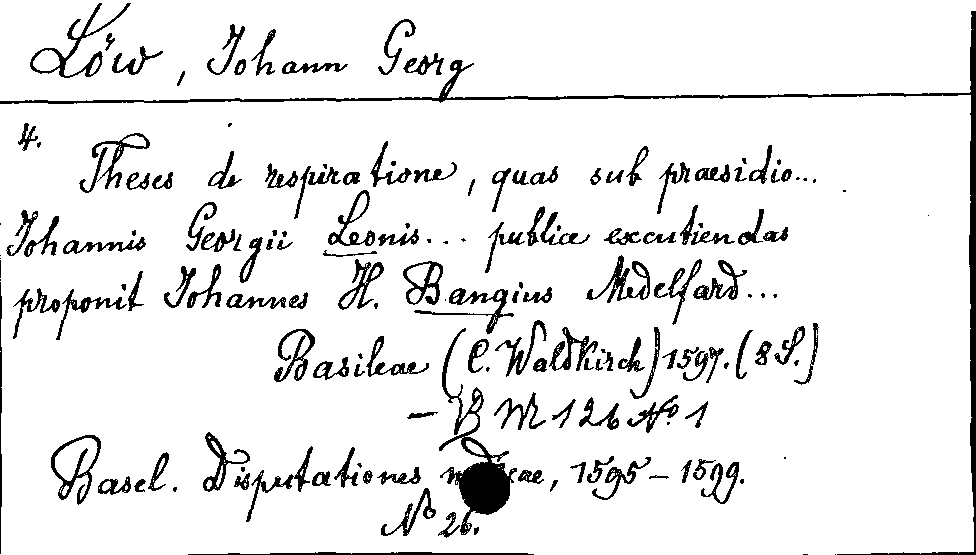 Löw, Johann Georg
4.
Theses de respiratione, quas sub praesidio...
Johannis Georgii Leonis... publice excutiendas
proponit Johannes H. Bangius Medelfard...
Basileae (C. Waldkirch) 1597. (8 S.)
– B M 126 No 1
Basel. Disputationes, 1595–1599.
No 26.